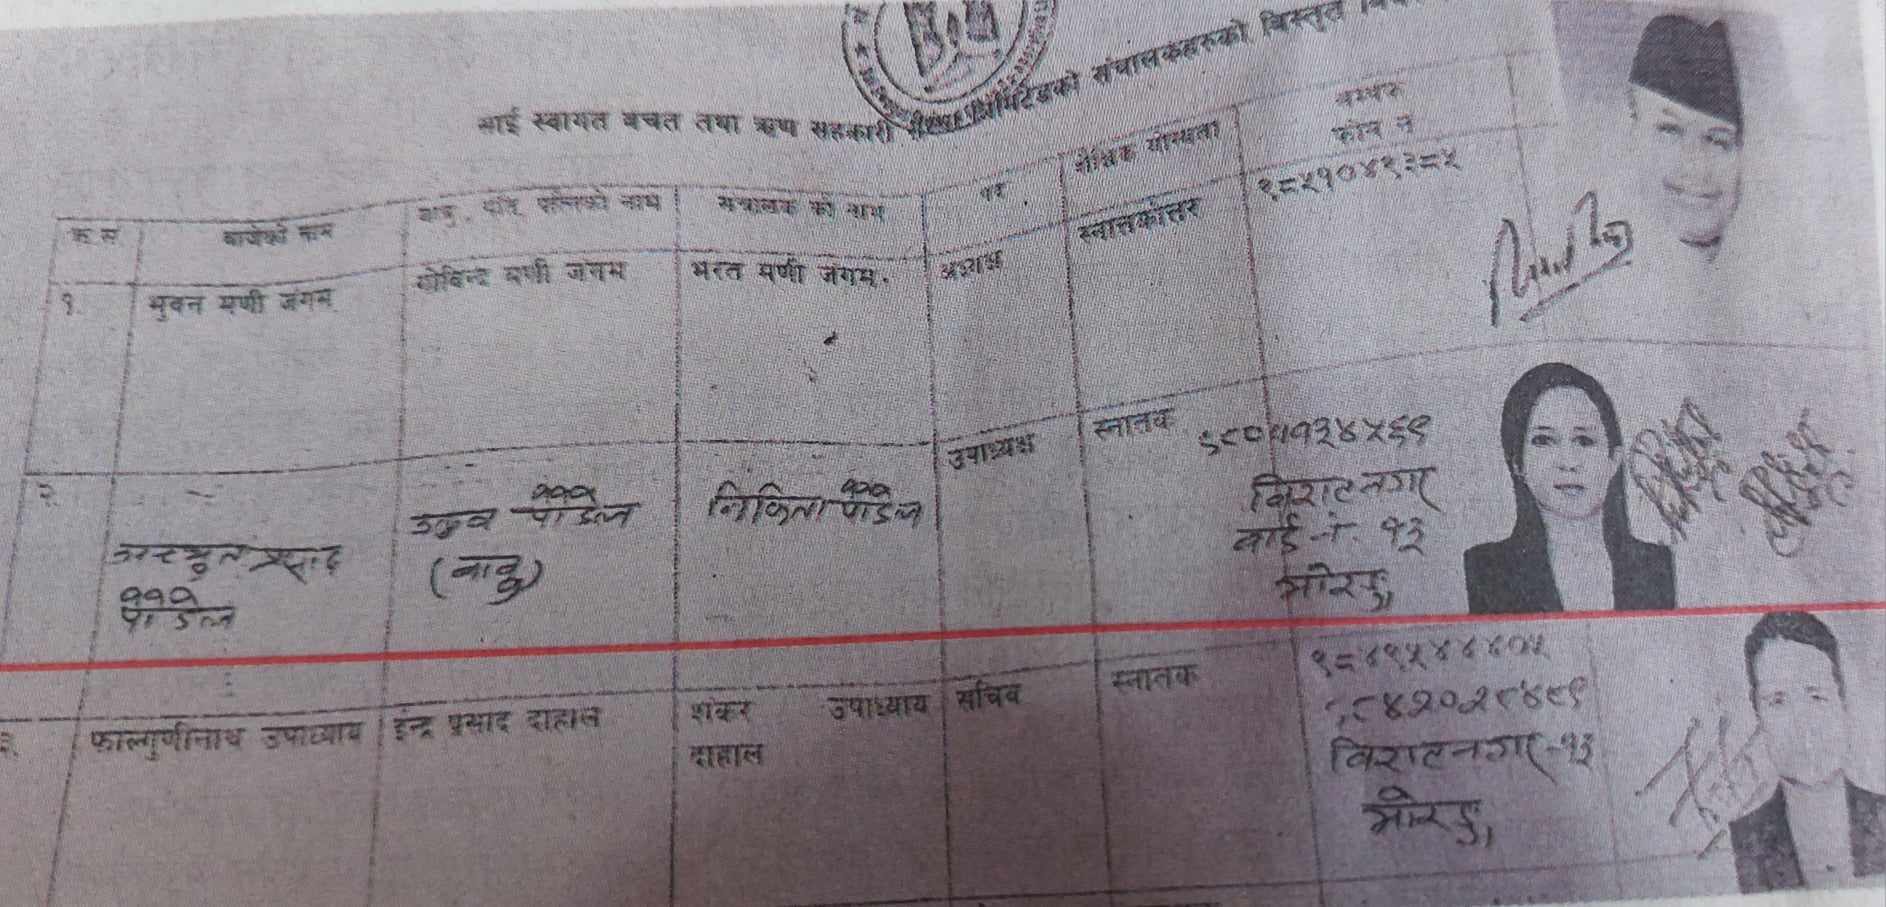 साई स्वागत बचत तथा ऋण सहकारी लिमिटेडको संचालकहरुको विस्तृत
क्र.सं बाजेको नाम बाबु, पति, पत्निको नाम संचालक को नाम पद शैक्षिक योग्यता सम्पर्क फोन नं
१. भुवन मणी जंगम गोविन्द मणी जंगम भरत मणी जंगम. अध्यक्ष स्नातकोत्तर ९८५१०४१३८५
२ प्रसाद पौडेल पौडेल (बाबु) निकिता पौडेल उपाध्यक्ष स्नातक
विराटनगर
वार्ड नं. १३
मोरङ,
३. फाल्गुणीनाथ उपाध्याय इन्द्र प्रसाद दाहाल शंकर उपाध्याय दाहाल सचिव स्नातक
विराटनगर-१३
मोरङ,